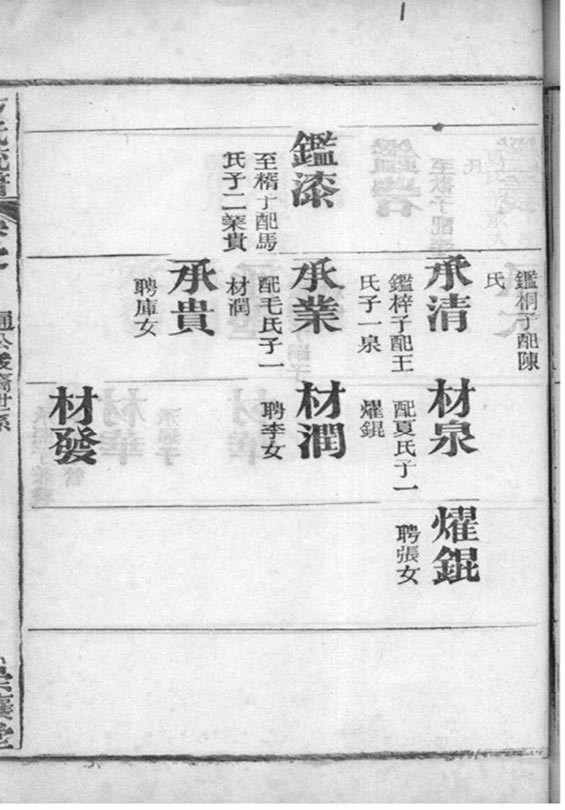 鑑桐子配陳
氏
鑑漆
至楈子配馬
氏子二業貴
承清
鑑梓子配王
氏子一泉
承業
配毛氏子一
材潤
承貴
聘庫女
材泉
配夏氏子一
燿錕
材潤
聘李女
材發
燿錕
聘張女